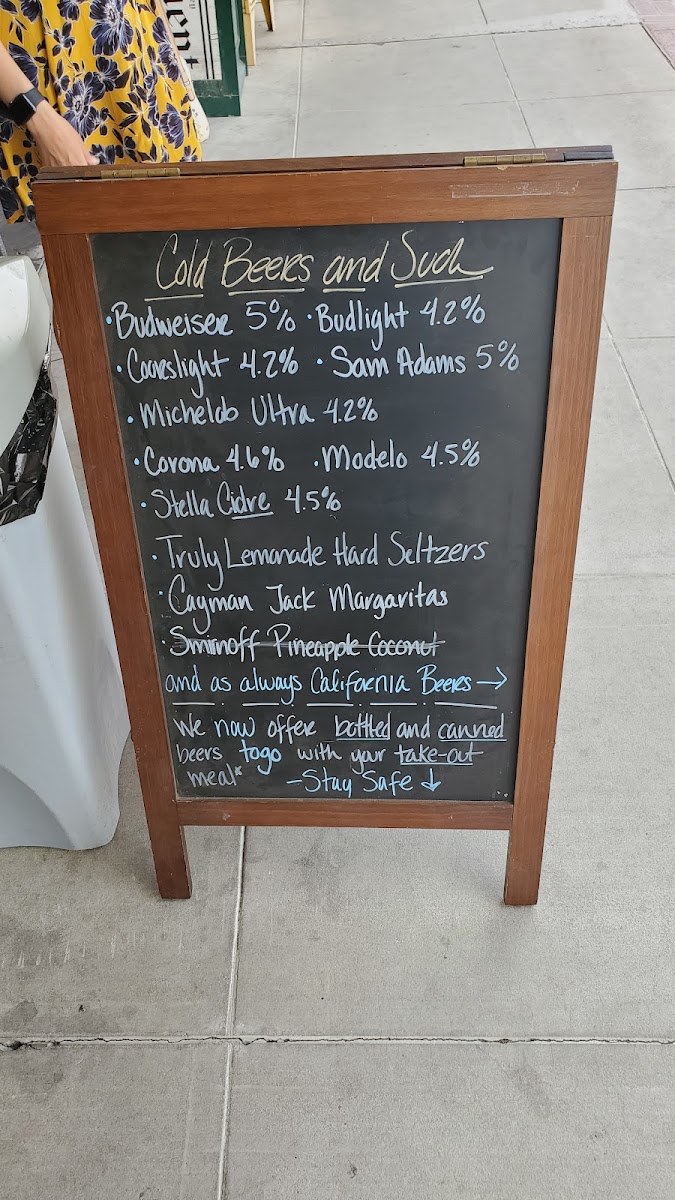 ment
Cold Beers and Such
• Budweiser 5% • Budlight 4.2%
• Coorslight 4.2% • Sam Adams 5%
• Michelob Ultra 4.2%
• Corona 4.6% • Modelo 4.5%
• Stella Cidre 4.5%
• Truly Lemonade Hard Seltzers
• Cayman Jack Margaritas
• Smirnoff Pineapple Coconut
and as always California Beers →
We now offer bottled and canned
beers togo with your take-out
meal* -Stay Safe ↓